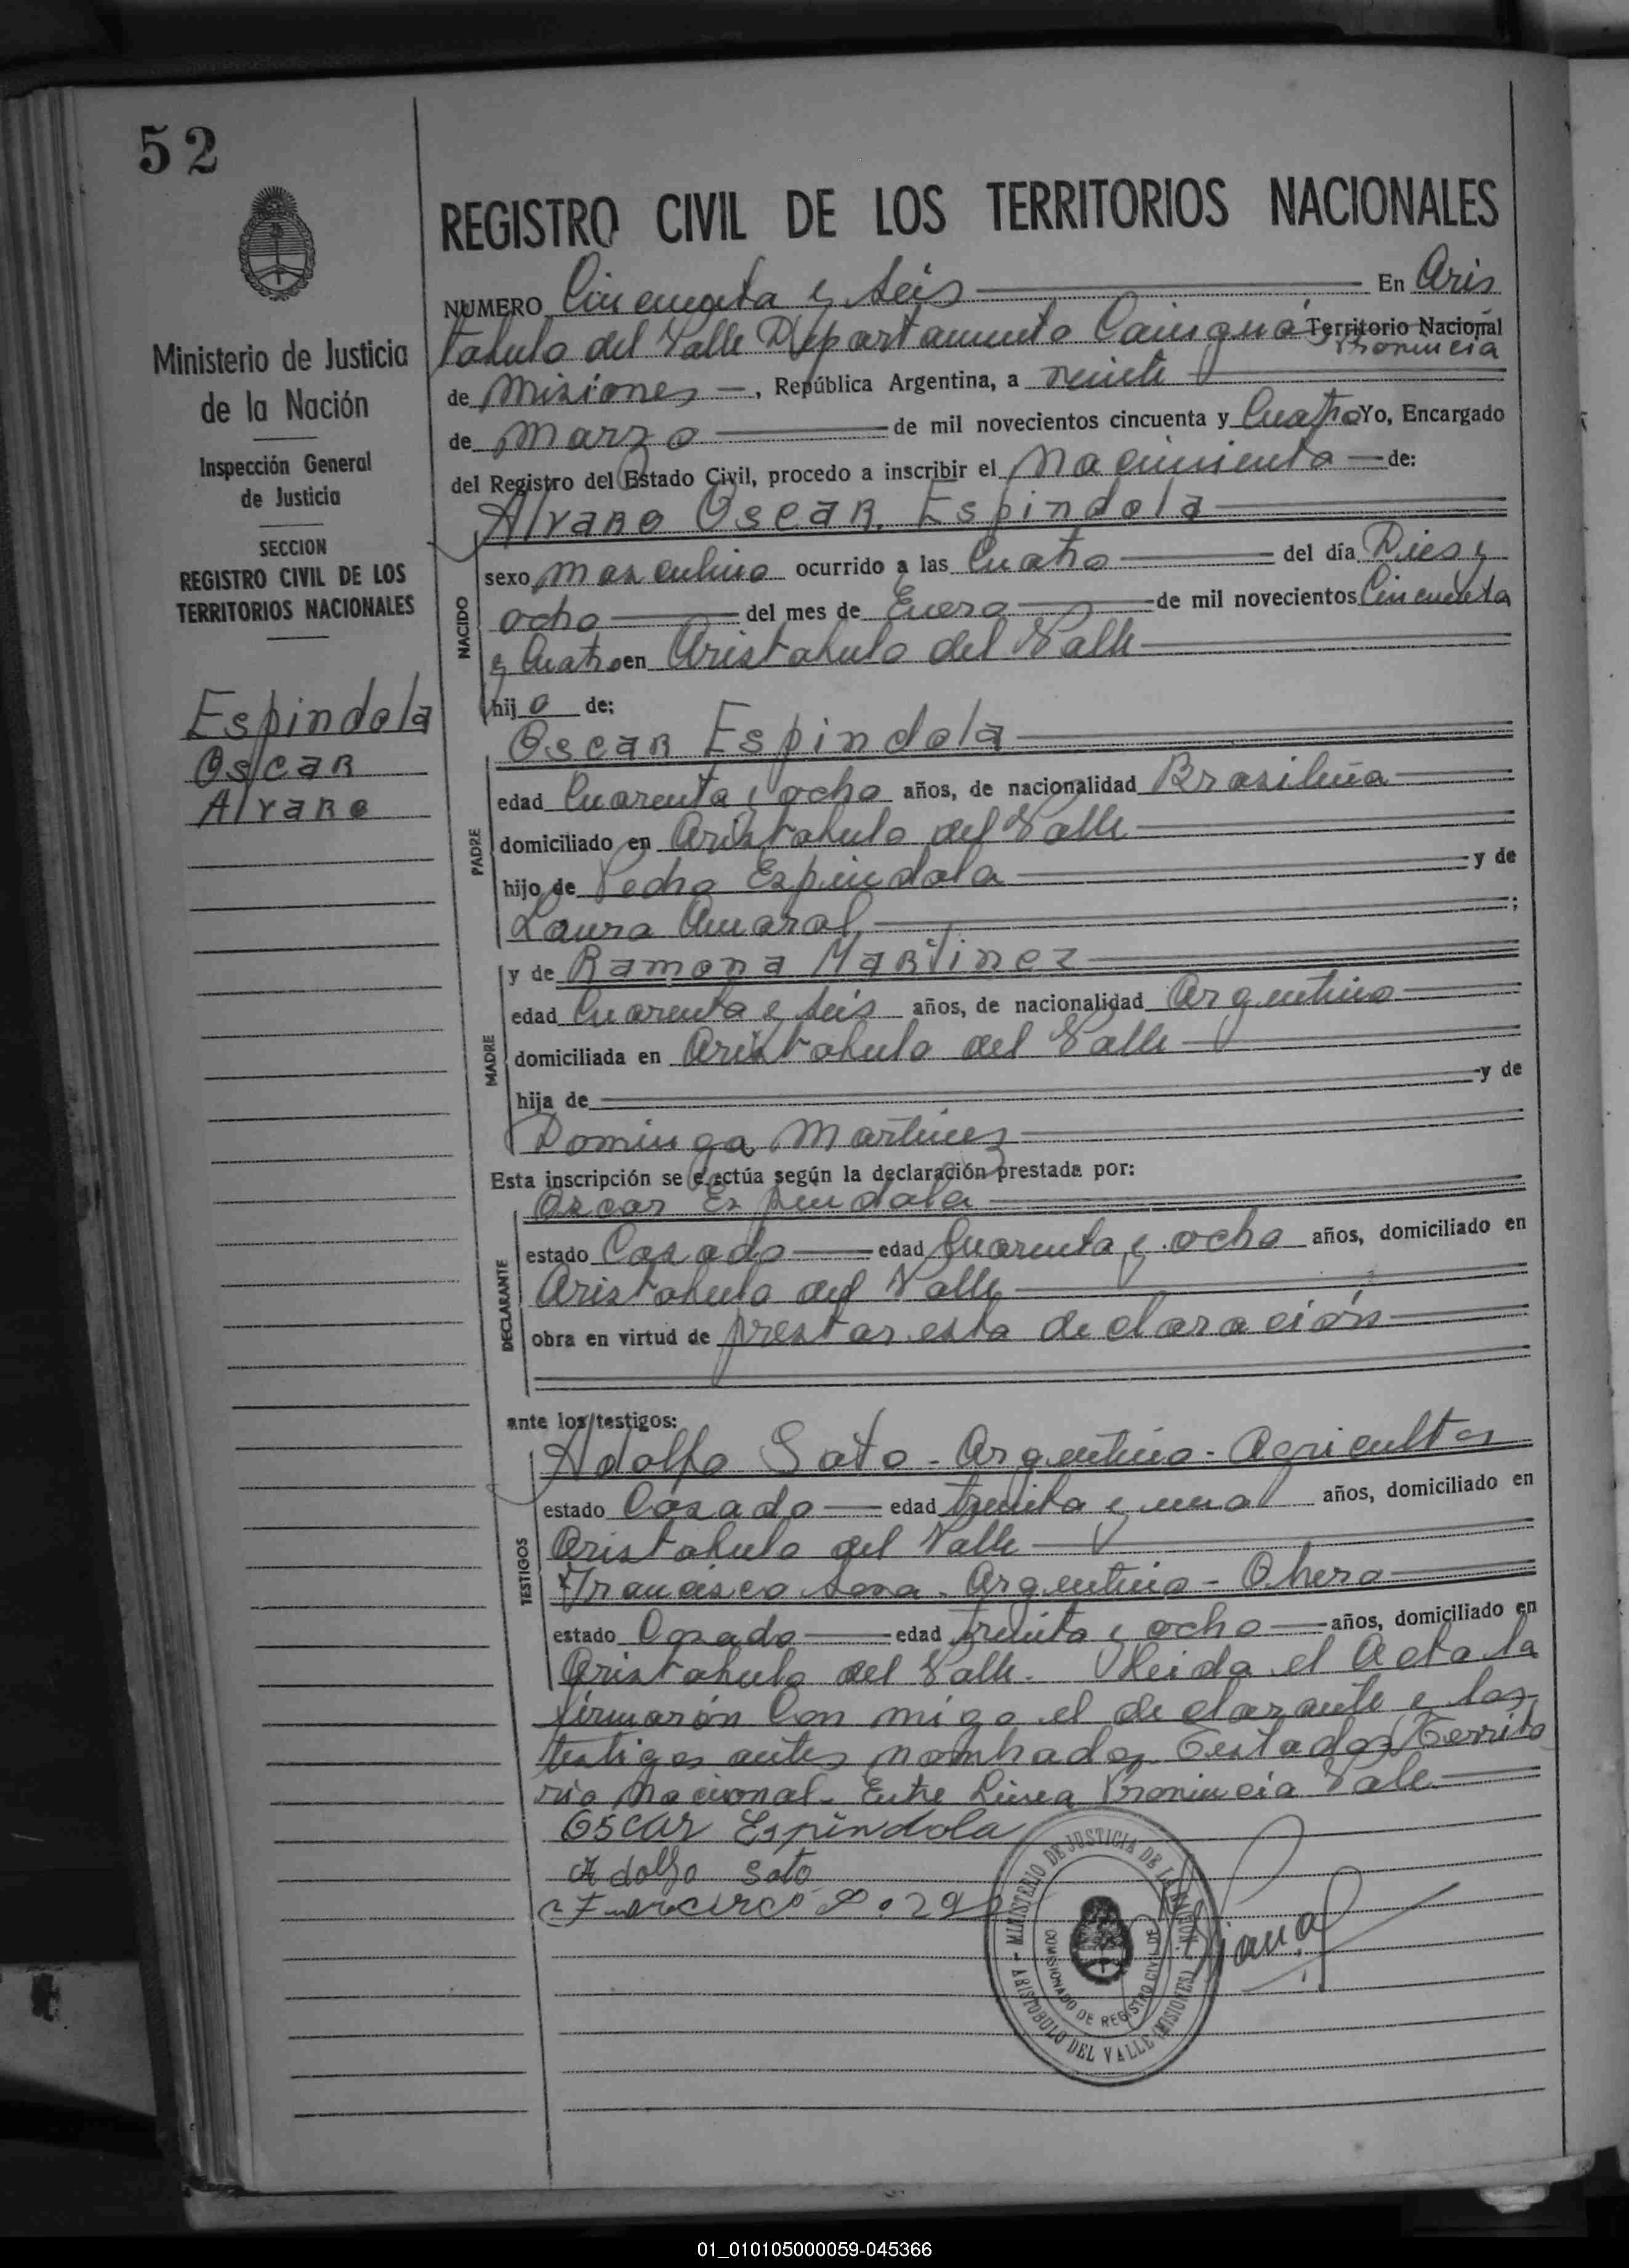 52
REGISTRO CIVIL DE LOS TERRITORIOS NACIONALES
Ministerio de Justicia
de la Nación
Inspección General
de Justicia
SECCION
REGISTRO CIVIL DE LOS
TERRITORIOS NACIONALES
Espindola
Oscar
Alvaro
NUMERO Cincuenta y Seis En Aris
tobulo del Valle Departamento Cainguá Territorio Nacional
Provincia
de Misiones, República Argentina, a veinte
de Marzo de mil novecientos cincuenta y Cuatro Yo, Encargado
del Registro del Estado Civil, procedo a inscribir el Nacimiento de:
Alvaro Oscar Espindola
NACIDO
sexo Masculino ocurrido a las Cuatro del día Dies y
ocho del mes de Enero de mil novecientos Cincuenta
y Cuatro en Aristobulo del Valle
hijo de:
Oscar Espindola
PADRE
edad Cuarenta y ocho años, de nacionalidad Brasileña
domiciliado en Aristobulo del Valle
hijo de Pedro Espindola y de
Laura Amaral;
MADRE
y de Ramona Martinez
edad Cuarenta y Seis años, de nacionalidad Argentino
domiciliada en Aristobulo del Valle
hija de y de
Dominga Martinez
Esta inscripción se efectúa según la declaración prestada por:
DECLARANTE
Oscar Espindola
estado Casado edad Cuarenta y ocho años, domiciliado en
Aristobulo del Valle
obra en virtud de prestar esta declaración
ante los testigos:
TESTIGOS
Adolfo Soto - Argentino - Agricultor
estado Casado edad treinta y uno años, domiciliado en
Aristobulo del Valle
Francisco Sosa. Argentino - Obrero
estado Casado edad treinta y ocho años, domiciliado en
Aristobulo del Valle. Lleida el Acta la
firmarón Con migo el declarante y los
testigos antes nombrados Testados Territo
rio Nacional - Entre Linea Provincia Vale
Oscar Espindola
Adolfo Soto
MINISTERIO DE JUSTICIA DE LA NACION
COMISIONADO DE REGISTRO CIVIL
ARISTOBULO DEL VALLE (MISIONES)
01_010105000059-045366